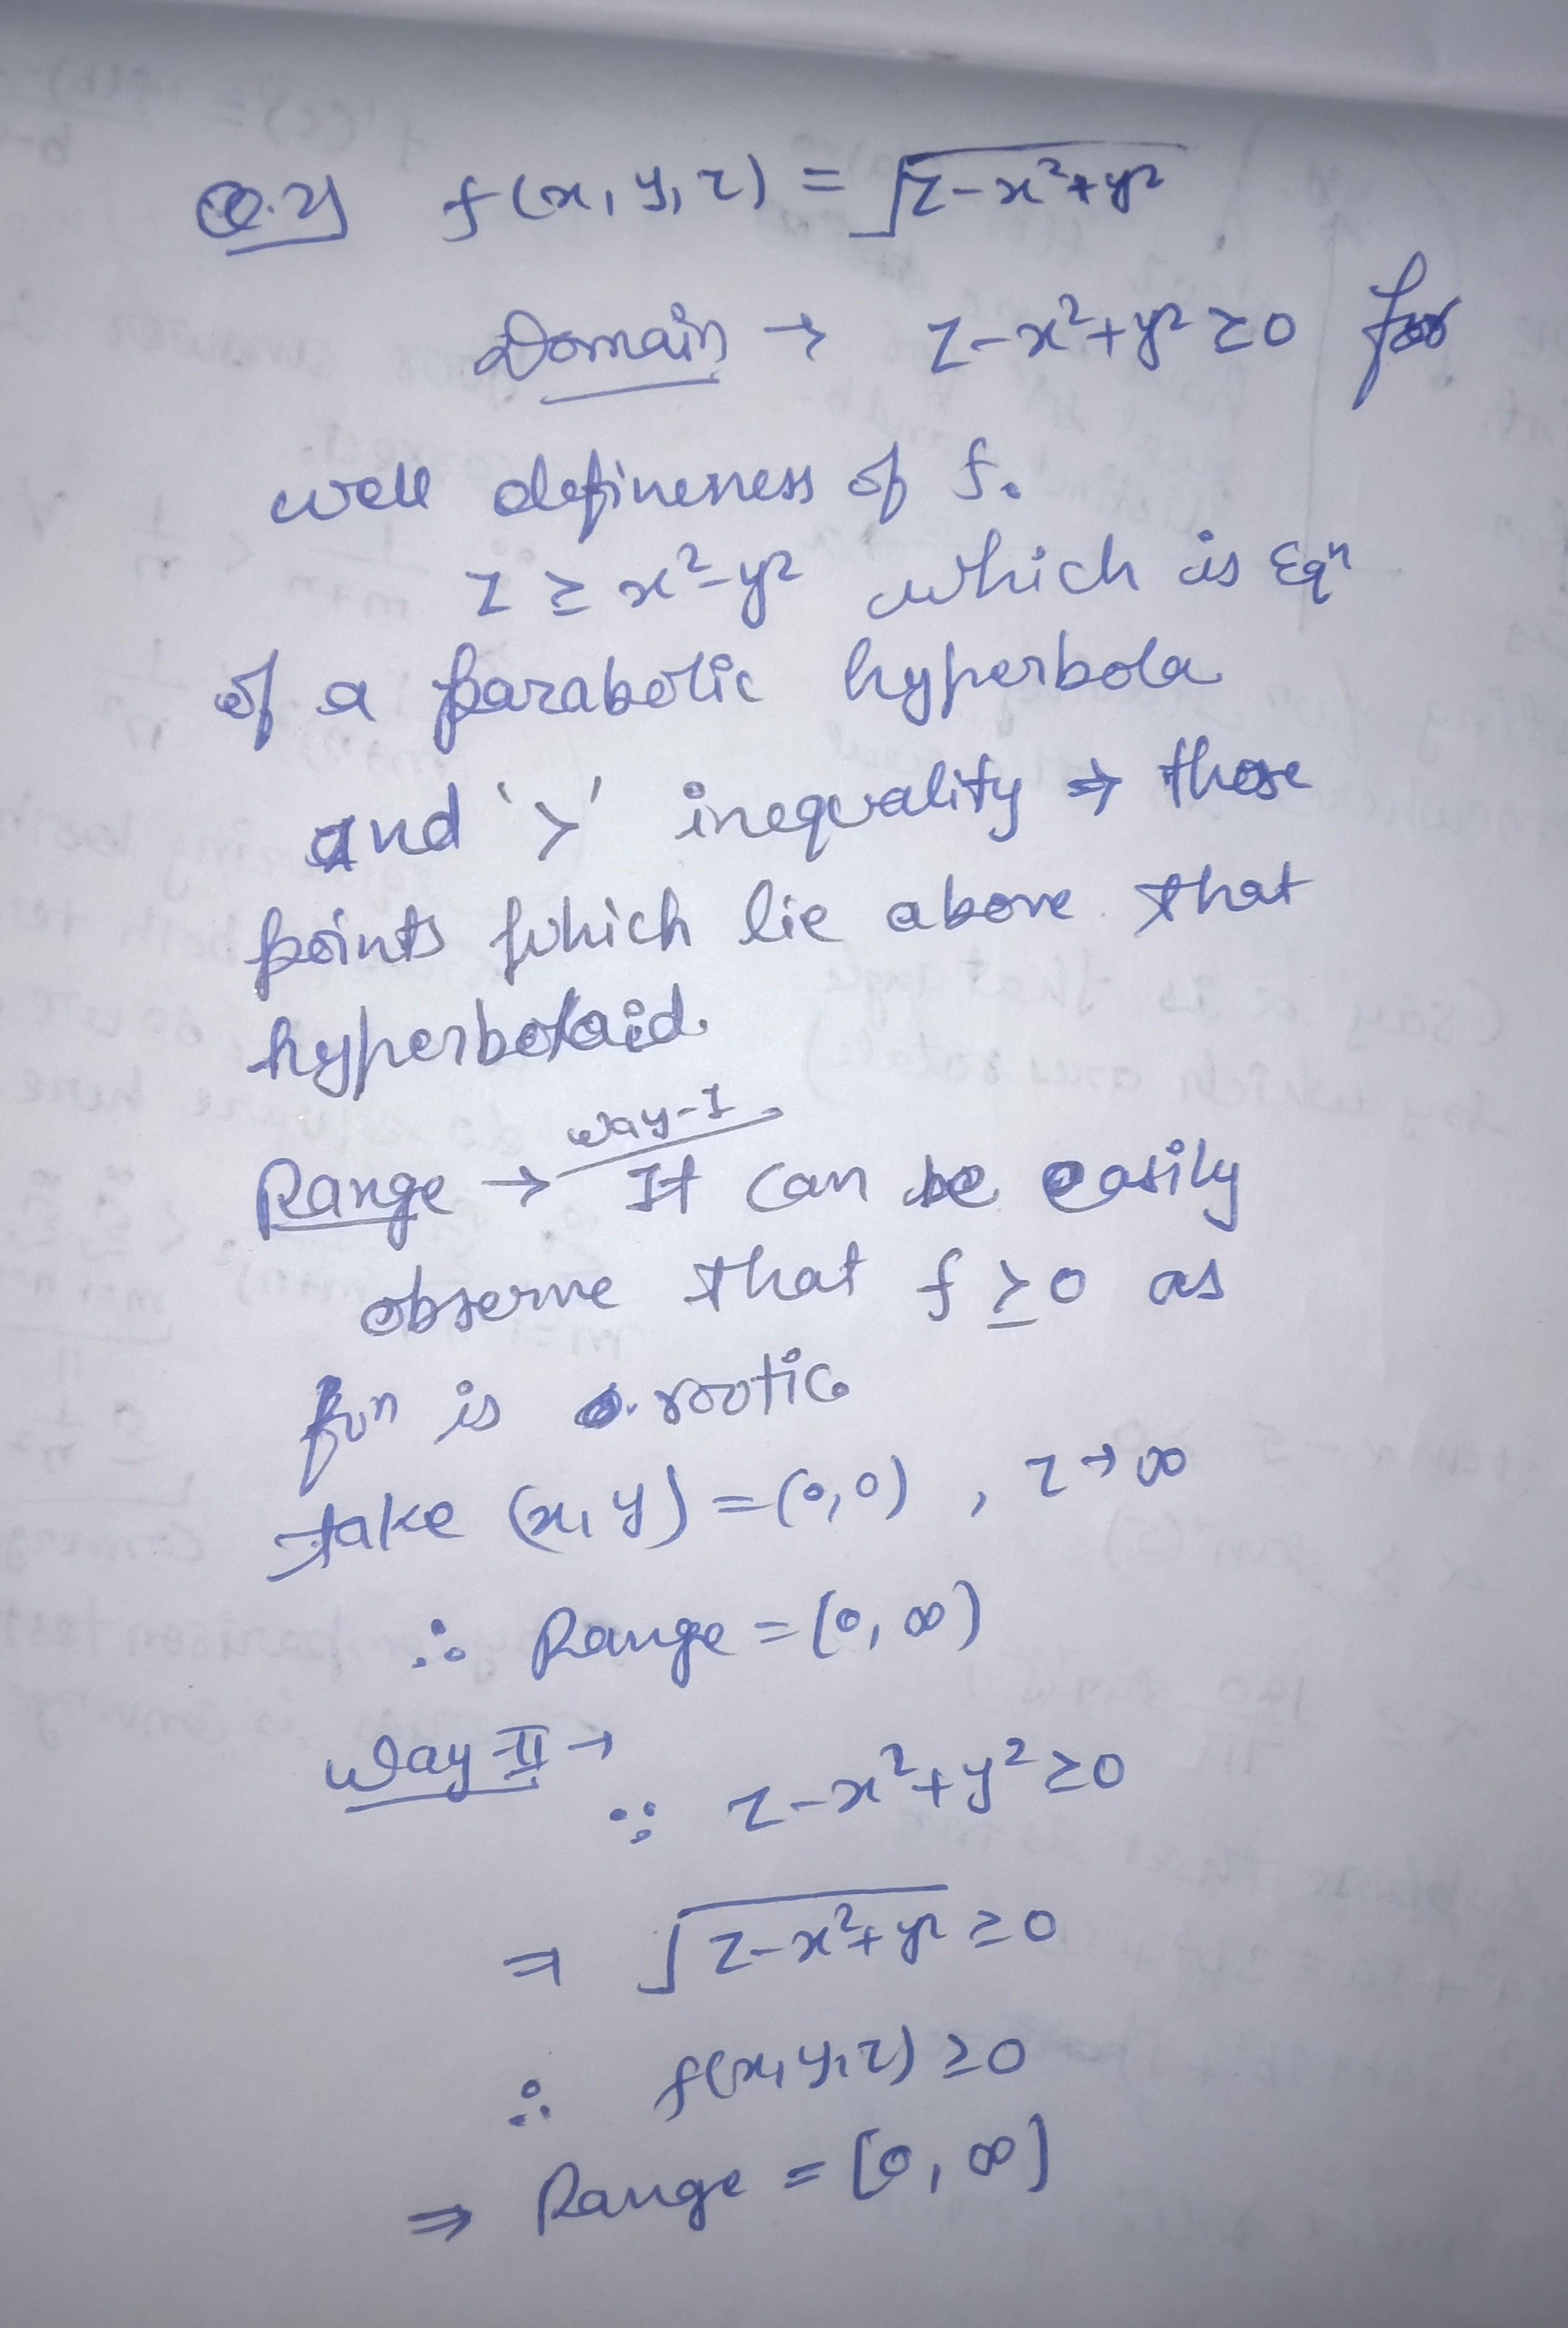 Q.2) f(x, y, z) = √z-x²+y²
Domain → z-x²+y² ≥0 for
well defineness of f.
z ≥ x²-y² which is Eqⁿ
of a parabolic hyperbola
and '>' inequality ⇒ those
points which lie above that
hyperboloid.
way-I
Range → It can be easily
observe that f ≥ 0 as
fun is rootic
take (x, y) = (0,0) , z→∞
∴ Range = [0, ∞)
Way-II →
∵ z-x²+y² ≥0
⇒ √z-x²+y² ≥0
∴ f(x, y, z) ≥0
⇒ Range = [0, ∞]